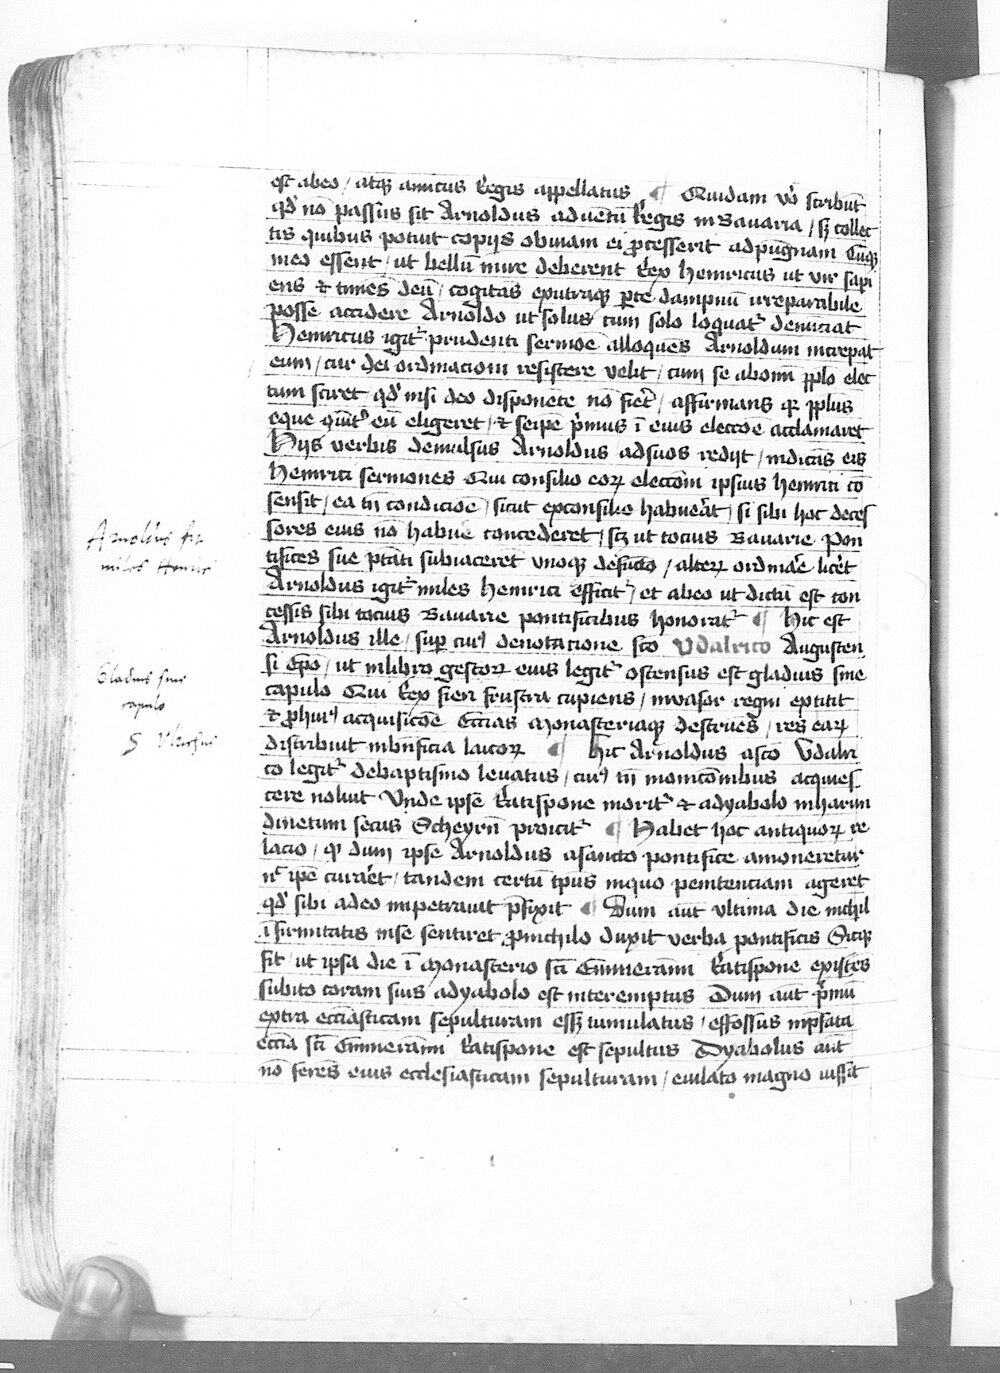 est abeo / atqꝫ amicus Regis appellatus ¶ Quidam vō scribūt
qd' nō passus sit Arnoldus aduētū Regis in Bauaria / sꝫ collec
tis quibus potuit copijs obuiam ei pͦcesserit adpugnam Cūqꝫ
in eo essent / ut bellū inire deberent Rex Heinricus ut vir sapi
ens et timēs deū / cogitās ex utraqꝫ pͣte dampnū irreparabile
posse accidere Arnoldo ut solus cum solo loquatr̄ denūciat
Heinricus igitr̄ prudenti sermōe alloquēs Arnoldum increpat
eum / cur dei ordinacioni resistere velit / cum se ab omni pplo elec
tum sciret / qd' nisi deo disponēte nō fieret / affirmans qꝛ ppl'us
eque eū eligeret / et seipē pͥmus ī eius electōe acclamaret
Hijs verbis demulsus Arnoldus ad suos redijt / indicās eis
Heinrici sermones Qui consilio eoꝝ electōni ipsius Heinrici cō
sensit / ea tn̄ condicōe / sicut ex consilio habueāt / si sibi hoc deces
sores eius nō habuē concederet / scꝫ ut tocius Bauarie Pon
tifices sue ptāti subiaceret vnoqꝫ defūcto / alteꝝ ordināe licēt
Arnoldus igitr̄ miles Heinrici efficitr̄ / et abeo ut dictū est con
cessis sibi tocius Bauarie pontificibus honoratr̄ ¶ Hic est
Arnoldus ille / sup cui9 denotacione scō Vdalrico Augusten
si Epō / ut in libro gestoꝝ eius legitr̄ ostensus est gladius sine
capulo Qui Rex fieri frustra cupiens / inuasor regni extitit
et pͦ hui9 acquisicōe Ecc̄ias Monasteriaqꝫ destruēs / res eaꝝ
distribuit in bn̄ficia laicoꝝ ¶ Hic Arnoldus a scō Vdalri
co legitr̄ de baptismo leuatus / cui9 tn̄ monicōnibus acquies
cere noluit Vnde ipse Ratispone moritr̄ et adyabolo in harun
dinetum secus Scheyrn̄ proicitr̄ ¶ Habet hoc antiquoꝝ re
lacio / qd' dum ipse Arnoldus a sancto pontifice amoneretur
nͨ ipē curaēt / tandem certū tp̄us in quo penitenciam ageret
qd' sibi adeo impetrauit pͤfixit ¶ Dum aut̄ vltima die nichil
ī firmitatis in se sentiret pͦ nichilo duxit verba pontificis Sicqꝫ
fit / ut ipsa die ī Monasterio scī Emmerāmi Ratispone existēs
subito coram suis adyabolo est interemptus Dum aut̄ pͥmū
extra ecc̄iasticam sepulturam esset tumulatus / effossus in pͤfata
ecc̄ia scī Emmerāmi Ratispone est sepultus Dyabolus aut̄
nō ferēs eius ecclesiasticam sepulturam / eiulato magno iussit
Arnoldus fit
miles Henrici
Gladius sine
capulo
S Vlrichus